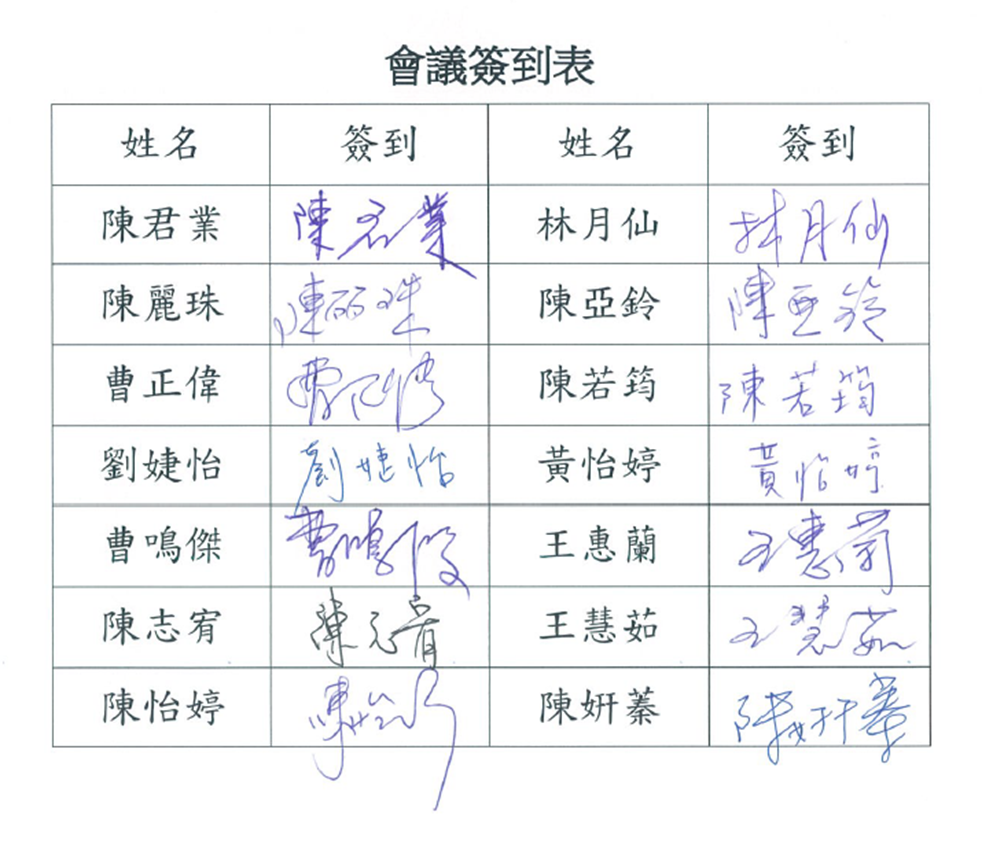 會議簽到表
姓名 簽到 姓名 簽到
陳君業 陳君業 林月仙 林月仙
陳麗珠 陳麗珠 陳亞鈴 陳亞鈴
曹正偉 曹正偉 陳若筠 陳若筠
劉婕怡 劉婕怡 黃怡婷 黃怡婷
曹鳴傑 曹鳴傑 王惠蘭 王惠蘭
陳志宥 陳志宥 王慧茹 王慧茹
陳怡婷 陳怡婷 陳妍蓁 陳妍蓁